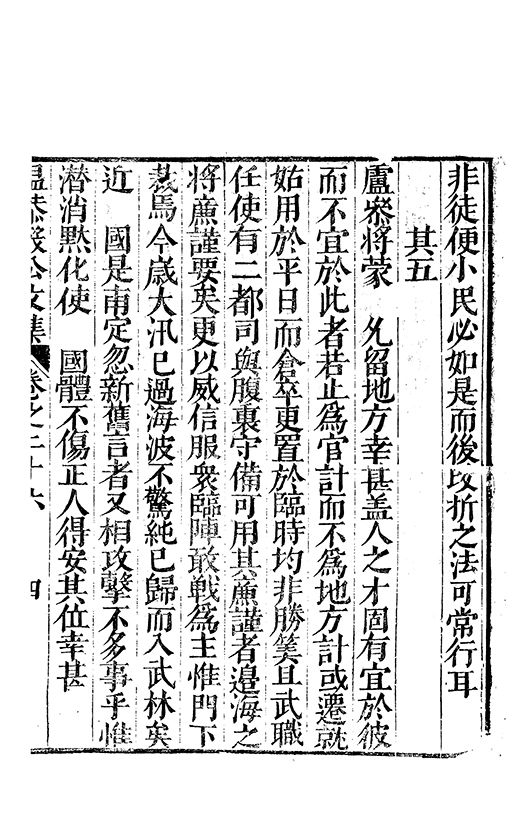 非徒便小民必如是而後改折之法可常行耳
其五
盧叅將蒙　允留地方幸甚盖人之才固有宜於彼
而不宜於此者若止爲官計而不爲地方計或遷就
姑用於平日而倉卒更置於臨時均非勝筭且武職
任使有二都司與腹裏守備可用其廉謹者邉海之
將廉謹要矣更以威信服衆臨陣敢戰爲主惟門下
裁焉今歲大汛已過海波不驚純已歸而入武林矣
近　國是甫定忽新舊言者又相攻擊不多事乎惟
潜消黙化使　國體不傷正人得安其位幸甚
温恭毅公文集　卷之二十六　四